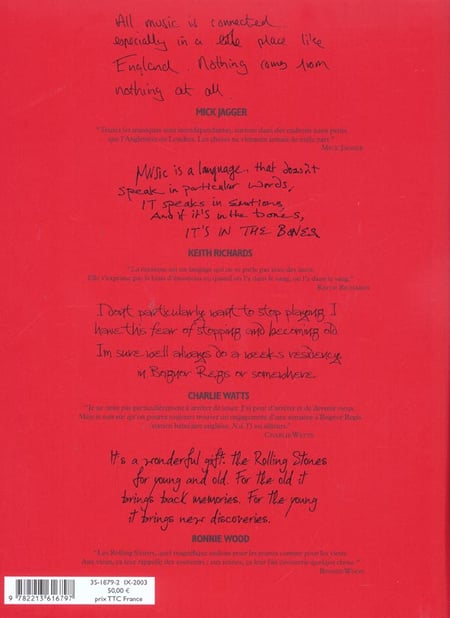 All music is connected
especially in a little place like
England. Nothing comes from
nothing at all
MICK JAGGER
"Toutes les musiques sont interdépendantes, surtout dans des endroits aussi petits
que l'Angleterre ou Londres. Les choses ne viennent jamais de nulle part."
MICK JAGGER
MUSIC is a language, that doesn't
speak in particular words,
IT speaks in emotions,
And if it's in the bones,
IT'S IN THE BONES
KEITH RICHARDS
"La musique est un langage qui ne se parle pas avec des mots.
Elle s'exprime par le biais d'émotions, quand on l'a dans le sang, on l'a dans le sang."
KEITH RICHARDS
I dont particularly want to stop playing I
have this fear of stopping and becoming old.
I'm sure we'll always do a weeks residency
in Bognor Regis or somewhere
CHARLIE WATTS
"Je ne tiens pas particulièrement à arrêter de jouer. J'ai peur d'arrêter et de devenir vieux.
Mais je suis sûr qu'on pourra toujours trouver un engagement d'une semaine à Bognor Regis
(station balnéaire anglaise, N.d.T) ou ailleurs."
CHARLIE WATTS
It's a wonderful gift: the Rolling Stones
for young and old. For the old it
brings back memories. For the young
it brings new discoveries.
RONNIE WOOD
"Les Rolling Stones, quel magnifique cadeau pour les jeunes comme pour les vieux.
Aux vieux, ça leur rappelle des souvenirs ; aux jeunes, ça leur fait découvrir quelque chose."
RONNIE WOOD
35-1679-2 IX-2003
50,00 €
prix TTC France
9 782213 616797